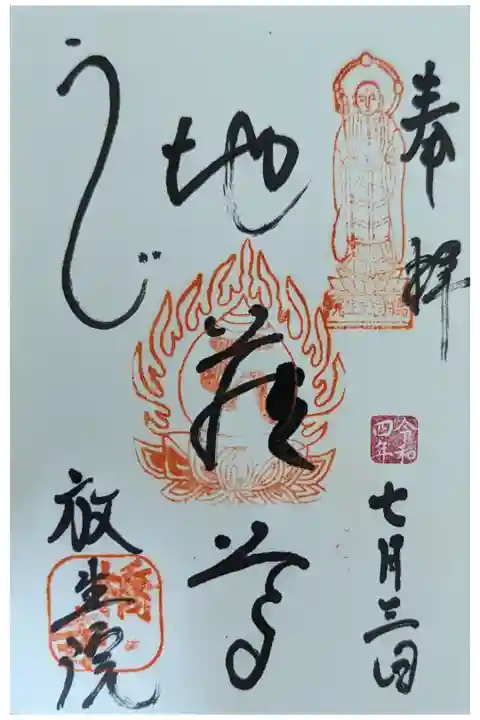 奉拝
令和四年
七月三日
地蔵尊
うじ
放生院